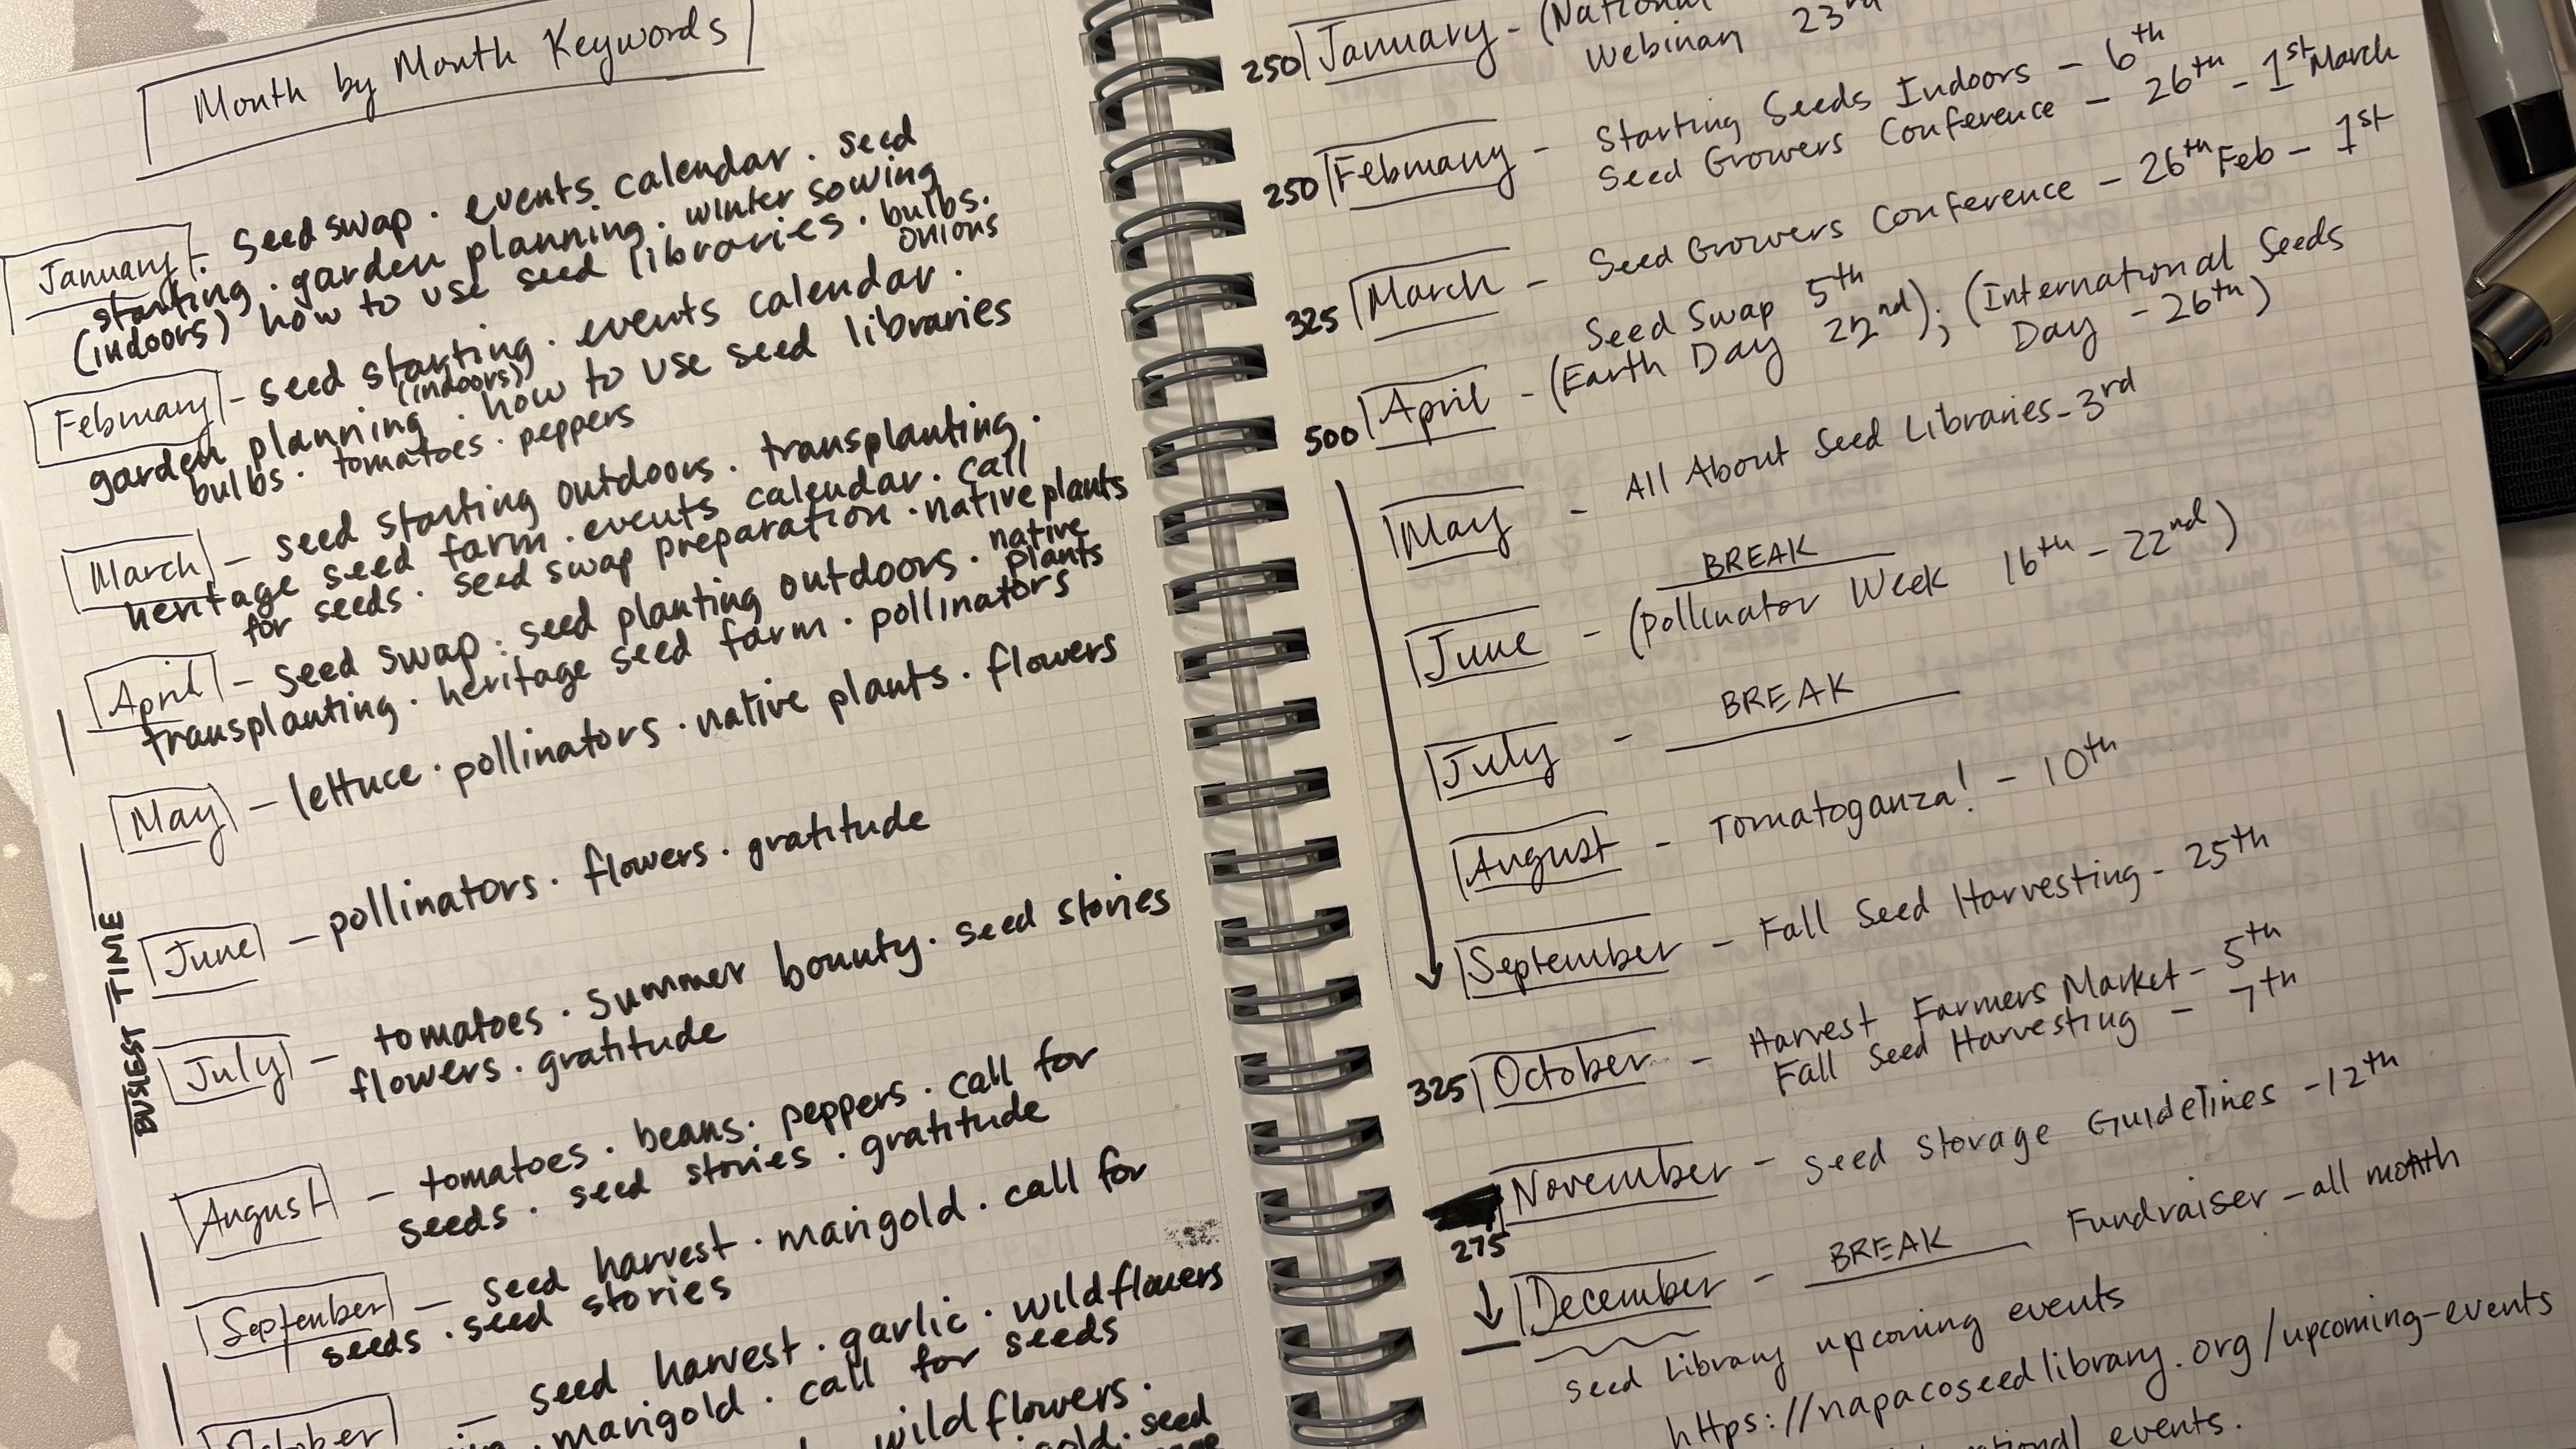 Month by Month Keywords
January - Seed swap · events calendar · seed
starting · garden planning · winter sowing
(indoors) how to use seed libraries · bulbs ·
onions
February - seed starting · events calendar ·
(indoors)
garden planning · how to use seed libraries
bulbs · tomatoes · peppers
March - seed starting outdoors · transplanting ·
heritage seed farm · events calendar · call
for seeds · seed swap preparation · native plants
April - seed swap · seed planting outdoors · native
plants
transplanting · heritage seed farm · pollinators
May - lettuce · pollinators · native plants · flowers
June - pollinators · flowers · gratitude
BUSIEST TIME
July - tomatoes · summer bounty · seed stories
flowers · gratitude
August - tomatoes · beans · peppers · call for
seeds · seed stories · gratitude
September - seed harvest · marigold · call for
seeds · seed stories
October - seed harvest · garlic · wildflowers
marigold · call for seeds
wildflowers ·
seed
250 January - (National
Webinar 23rd
250 February - Starting Seeds Indoors - 6th
Seed Growers Conference - 26th - 1st March
325 March - Seed Growers Conference - 26th Feb - 1st
Seed Swap 5th
500 April - (Earth Day 22nd); (International Seeds
Day - 26th)
May - All About Seed Libraries - 3rd
BREAK
June - (Pollinator Week 16th - 22nd)
July - BREAK
August - Tomatoganza! - 10th
September - Fall Seed Harvesting - 25th
325 October - Harvest Farmers Market - 5th
Fall Seed Harvesting - 7th
November - Seed Storage Guidelines - 12th
275
December - BREAK Fundraiser - all month
Seed Library upcoming events
https://napacoseedlibrary.org/upcoming-events
events.